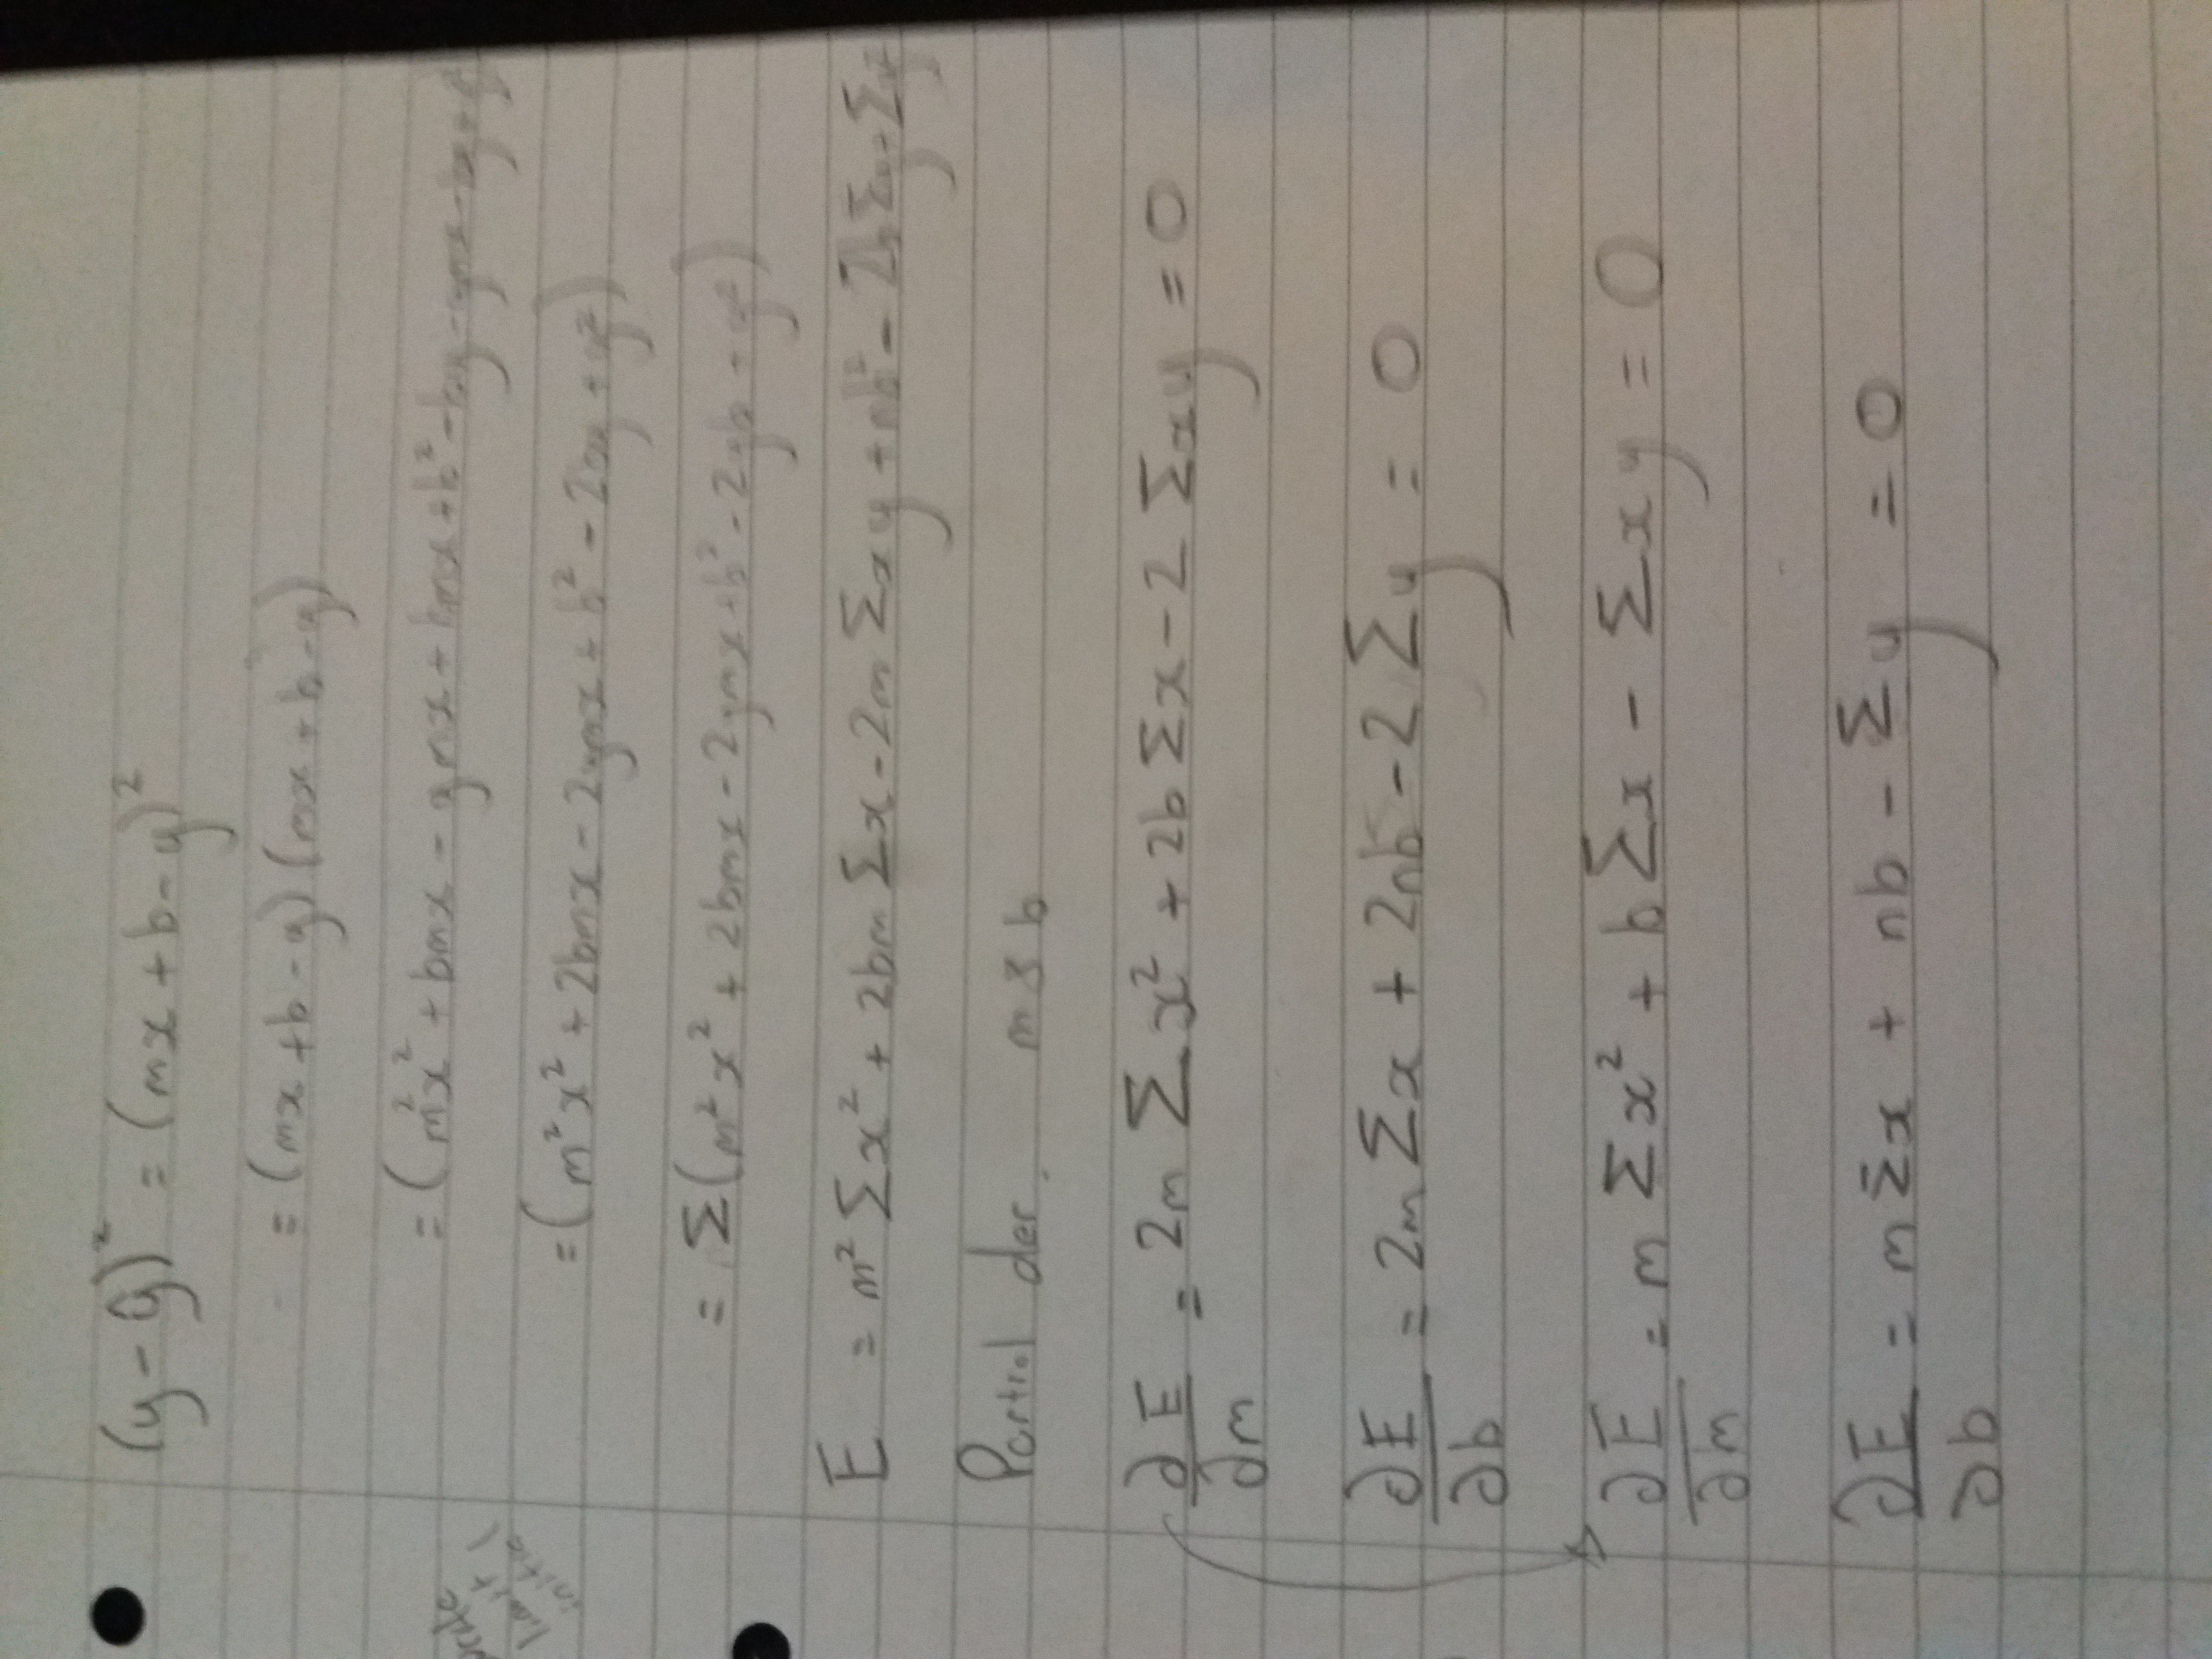 (y - ŷ)² = (mx + b - y)²
= (mx + b - y) (mx + b - y)
= (m²x² + bmx - ymx + bmx + b² - by - ymx - by + y²
limit
initial
= (m²x² + 2bmx - 2ymx + b² - 2by + y²)
= Σ(m²x² + 2bmx - 2ymx + b² - 2yb + y²)
E = m² Σx² + 2bm Σx - 2m Σxy + nb² - 2bΣy + Σy²
Partial der. m & b
∂E/∂m = 2m Σx² + 2b Σx - 2 Σxy = 0
∂E/∂b = 2m Σx + 2nb - 2 Σy = 0
∂E/∂m = m Σx² + b Σx - Σxy = 0
∂E/∂b = m Σx + nb - Σy = 0